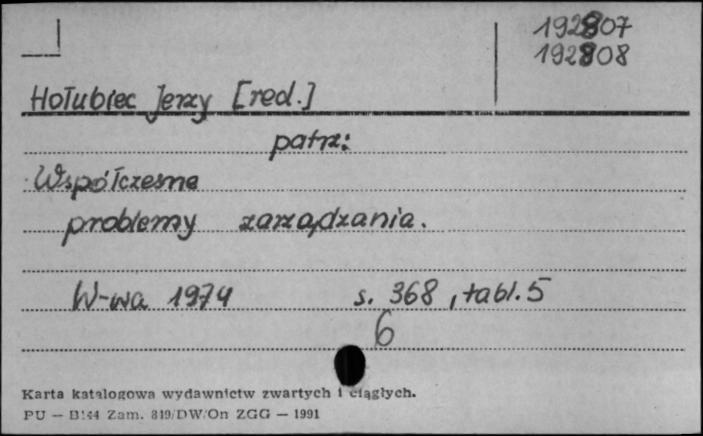 192807
192808
Hołubiec Jerzy [red.]
patrz:
Współczesne
problemy zarządzania.
W-wa 1974 s. 368, tabl. 5
6
Karta katalogowa wydawnictw zwartych i ciągłych.
PU — B144 Zam. 819/DW/On ZGG — 1991